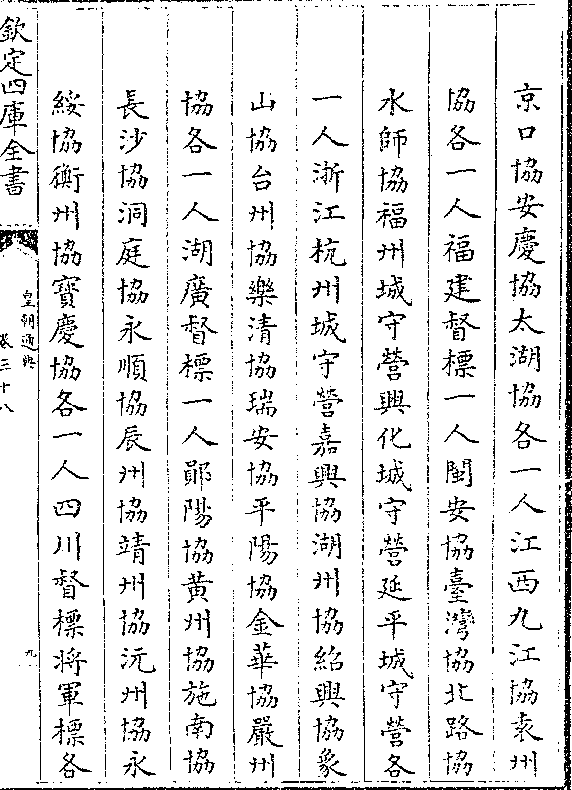 京口協安慶協太湖協各一人江西九江協袁州
協各一人福建督標一人閩安協臺灣協北路協
水師協福州城守營興化城守營延平城守營各
一人浙江杭州城守營嘉興協湖州協紹興協象
山協台州協樂清協瑞安協平陽協金華協嚴州
協各一人湖廣督標一人鄖陽協黃州協施南協
長沙協洞庭協永順協辰州協靖州協沅州協永
綏協衡州協寶慶協各一人四川督標將軍標各
欽定四庫全書
皇朝通典
卷三十八
九